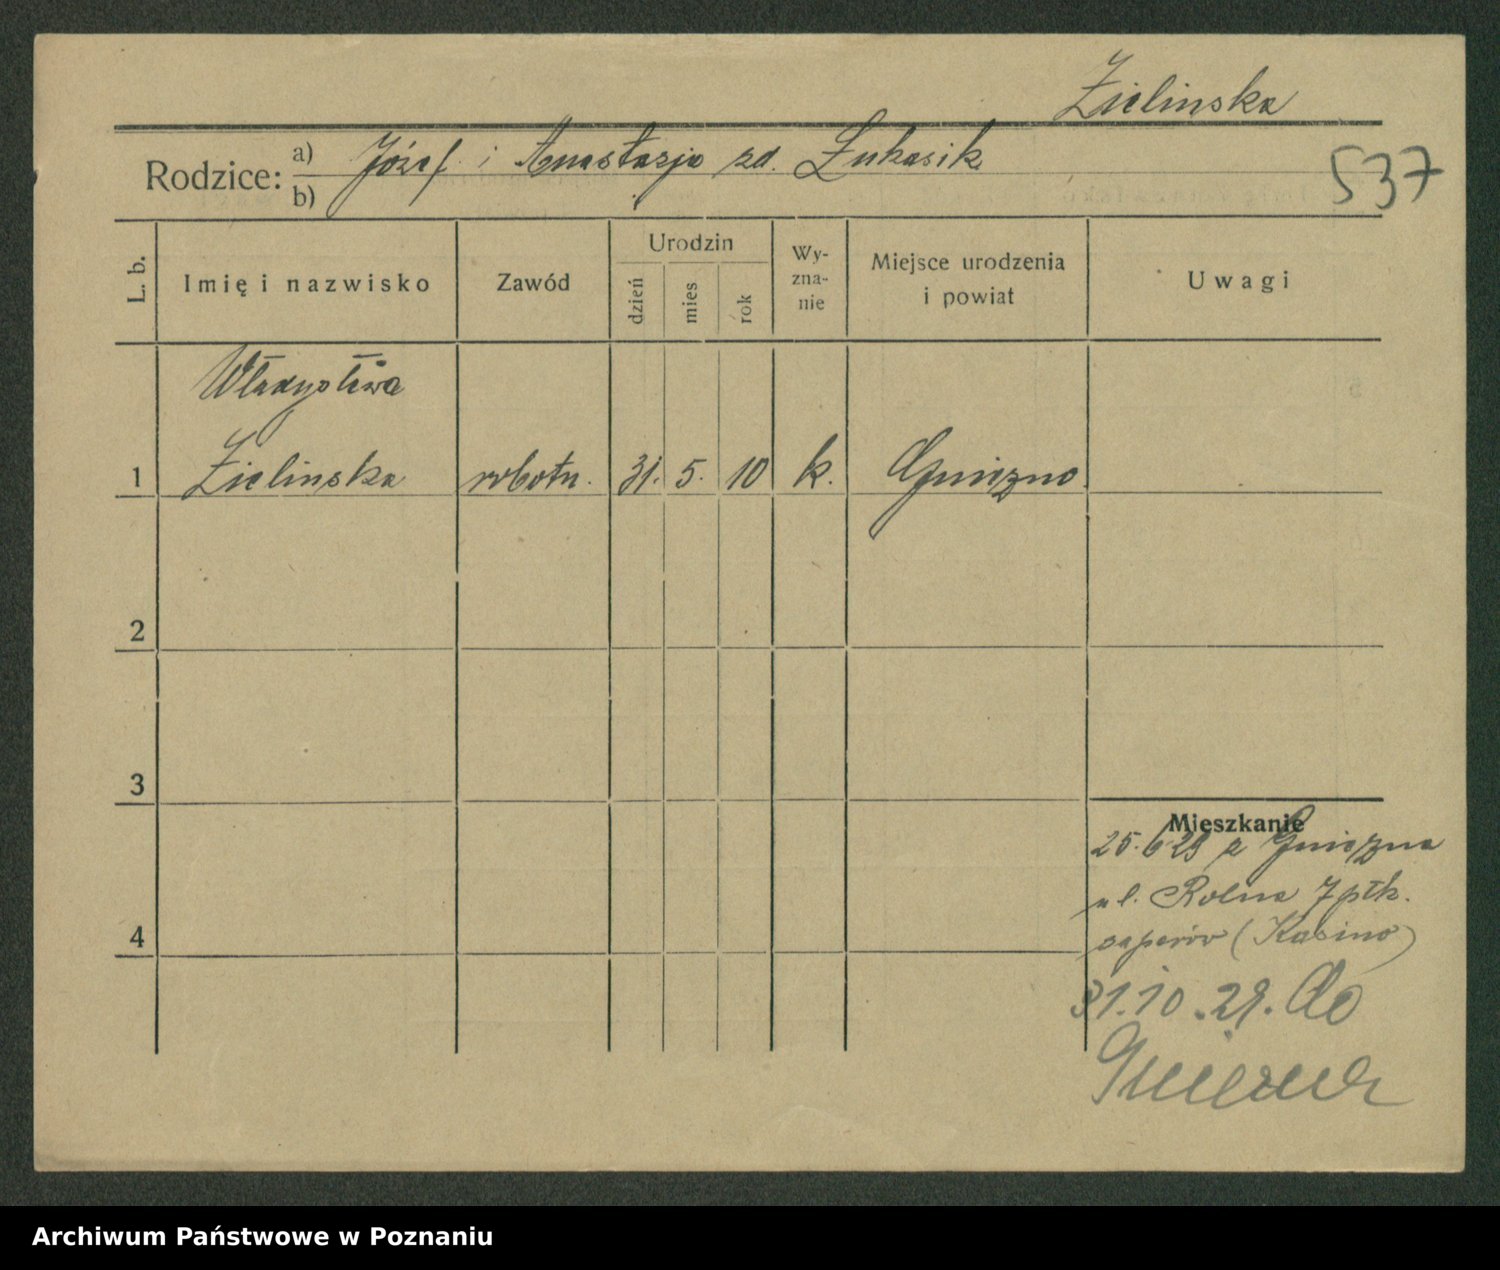 Zielinska
Rodzice: a) Józef i Anastazja zd. Łukasik
b)
537
L. b.
Imię i nazwisko
Zawód
Urodzin
dzień
mies
rok
Wy-
zna-
nie
Miejsce urodzenia
i powiat
Uwagi
Władysława
1 Zielinska robotn. 31. 5. 10 k. Gniezno
2
3
4
Mieszkanie
25.6.29 z Gniezna
ul. Rolna 7 płk.
saperów (Kasino)
31.10.29. Do
Gniezna
Archiwum Państwowe w Poznaniu